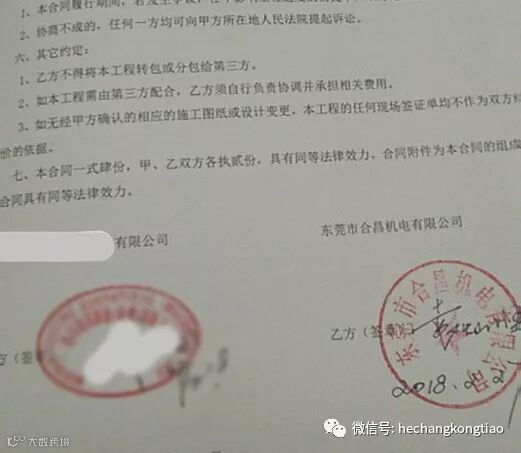 1、本合同履行期间，
2、协商不成的，任何一方均可向甲方所在地人民法院提起诉讼。
六、其它约定：
1、乙方不得将本工程转包或分包给第三方。
2、如本工程需由第三方配合，乙方须自行负责协调并承担相关费用。
3、如无经甲方确认的相应的施工图纸或设计变更，本工程的任何现场签证单均不作为双方
价的依据。
七、本合同一式肆份，甲、乙双方各执贰份，具有同等法律效力。合同附件为本合同的组成
合同具有同等法律效力。
有限公司
东莞市合昌机电有限公司
方（签
乙方（签章）
东莞市合昌机电有限公司
2018.
大数跨境
微信号: hechangkongtiao